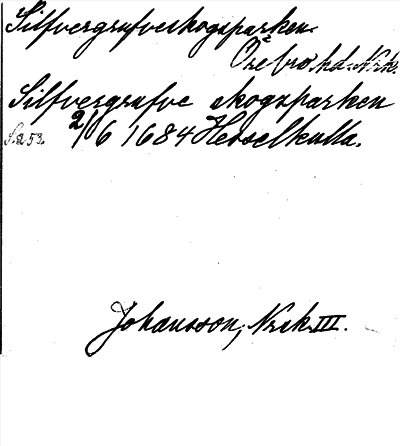 Silfvergrufveskogsparken.
Örebro hd. Nrk.
Silfvergrufve skogsparken
S. 253. 2/6 1684 Hesselkulla.
Johansson, Nrk III.